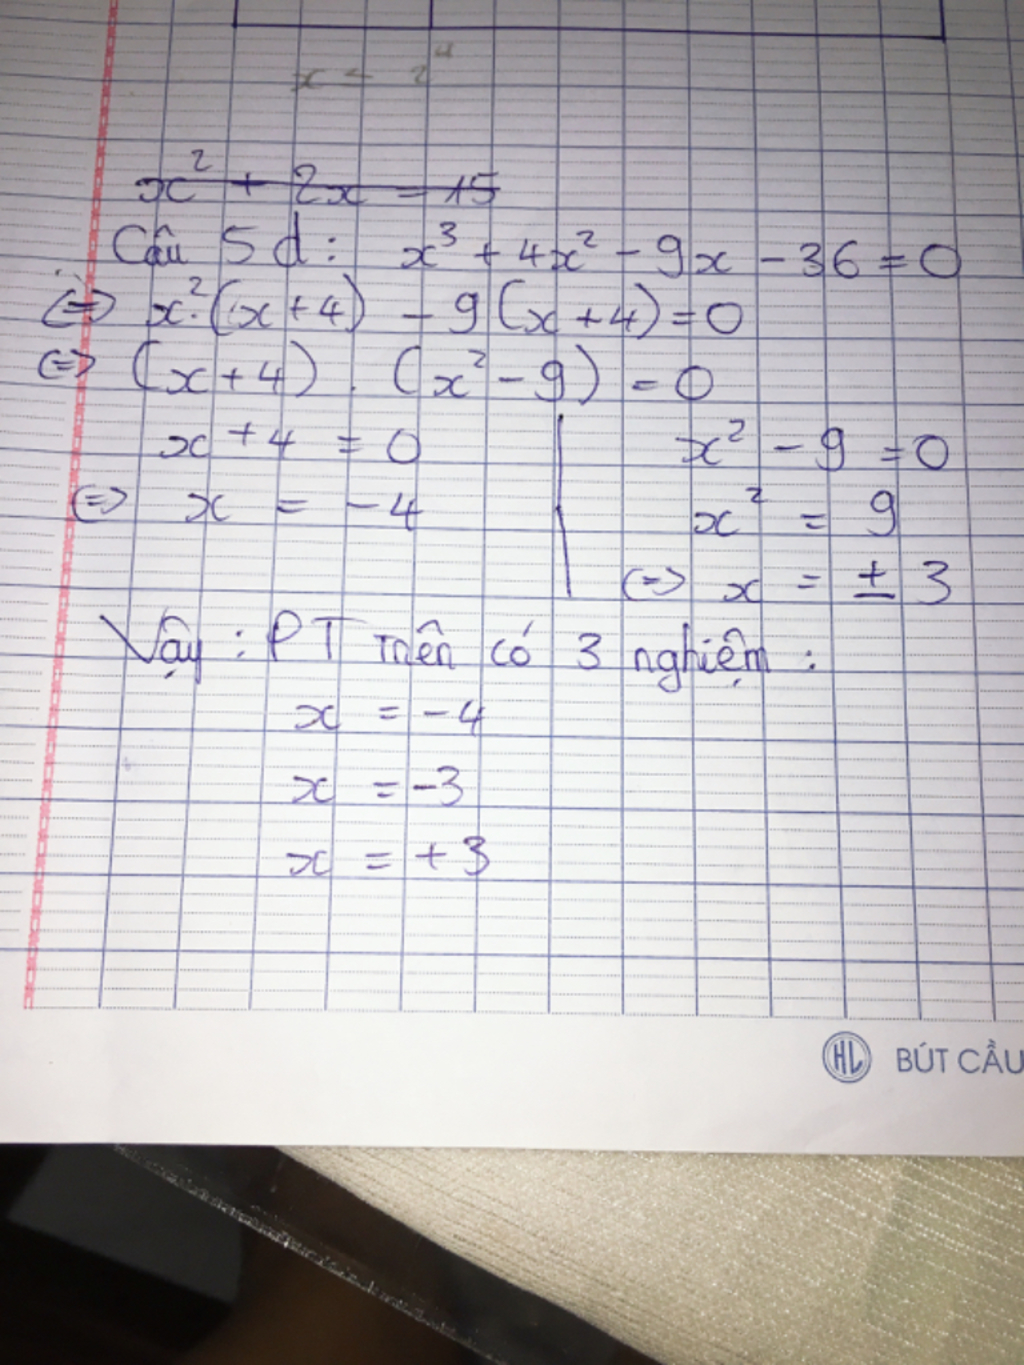 x² + 2x = 15
Câu 5 d: x³ + 4x² - 9x - 36 = 0
(=> x².(x+4) - 9(x+4) = 0
(=> (x+4) . (x² - 9) = 0
x + 4 = 0 | x² - 9 = 0
(=> x = -4 | x² = 9
(=> x = ± 3
Vậy : PT trên có 3 nghiệm :
x = -4
x = -3
x = +3
HL BÚT CẦU